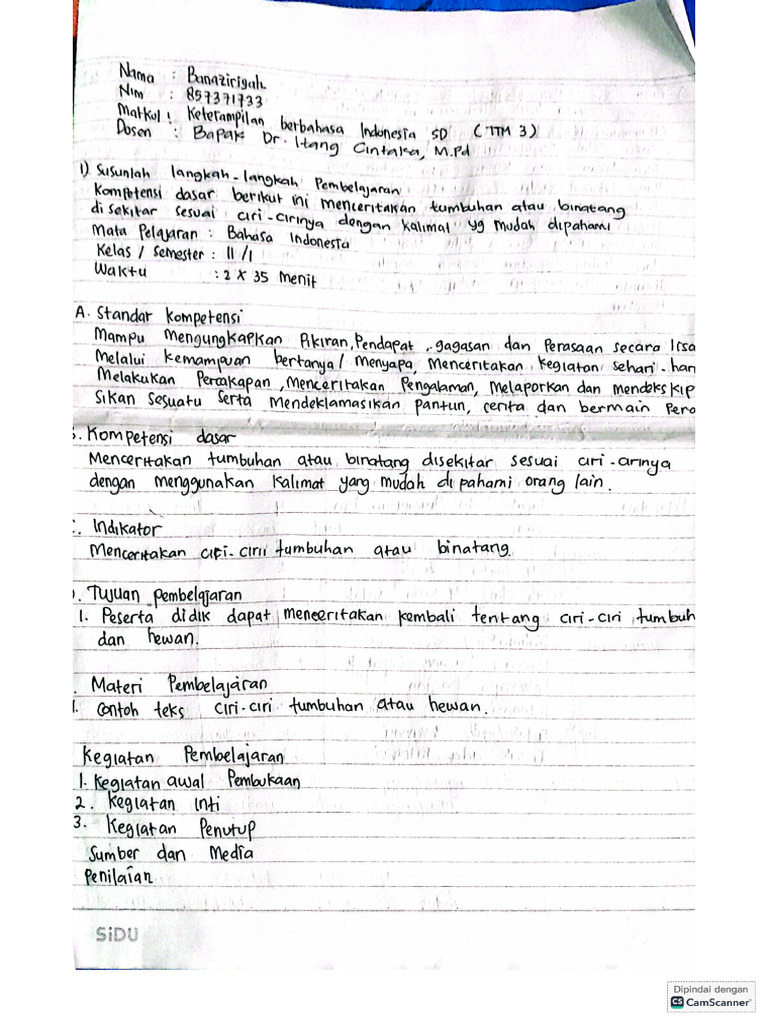 Nama : Banazirigah
Nim : 857371733
Matkul : Keterampilan berbahasa Indonesia SD (TTM 3)
Dosen : Bapak Dr. Itang Cintaka, M.Pd
1) Susunlah langkah-langkah Pembelajaran
Kompetensi dasar berikut ini menceritakan tumbuhan atau binatang
di sekitar sesuai ciri-cirinya dengan kalimat yg mudah dipahami
Mata Pelajaran : Bahasa Indonesia
Kelas / Semester : II/I
Waktu : 2 x 35 Menit
A. Standar Kompetensi
Mampu Mengungkapkan Pikiran, Pendapat, gagasan dan Perasaan secara lisa
Melalui kemampuan bertanya/Menyapa, Menceritakan kegiatan sehari-har
Melakukan Percakapan, Menceritakan Pengalaman, Melaporkan dan mendekskip
Sikan Sesuatu Serta Mendeklamasikan pantun, cerita dan bermain Pera
. Kompetensi dasar
Menceritakan tumbuhan atau binatang disekitar sesuai ciri-cirinya
dengan menggunakan kalimat yang mudah di pahami orang lain.
. Indikator
Menceritakan ciri-cirii tumbuhan atau binatang.
. Tujuan pembelajaran
1. Peserta didik dapat menceritakan kembali tentang ciri-ciri tumbuh
dan hewan.
. Materi Pembelajaran
1. contoh teks ciri-ciri tumbuhan atau hewan.
Kegiatan Pembelajaran
1. Kegiatan awal Pembukaan
2. Kegiatan Inti
3. Kegiatan Penutup
Sumber dan Media
Penilaian
SiDU
Dipindai dengan
CS CamScanner